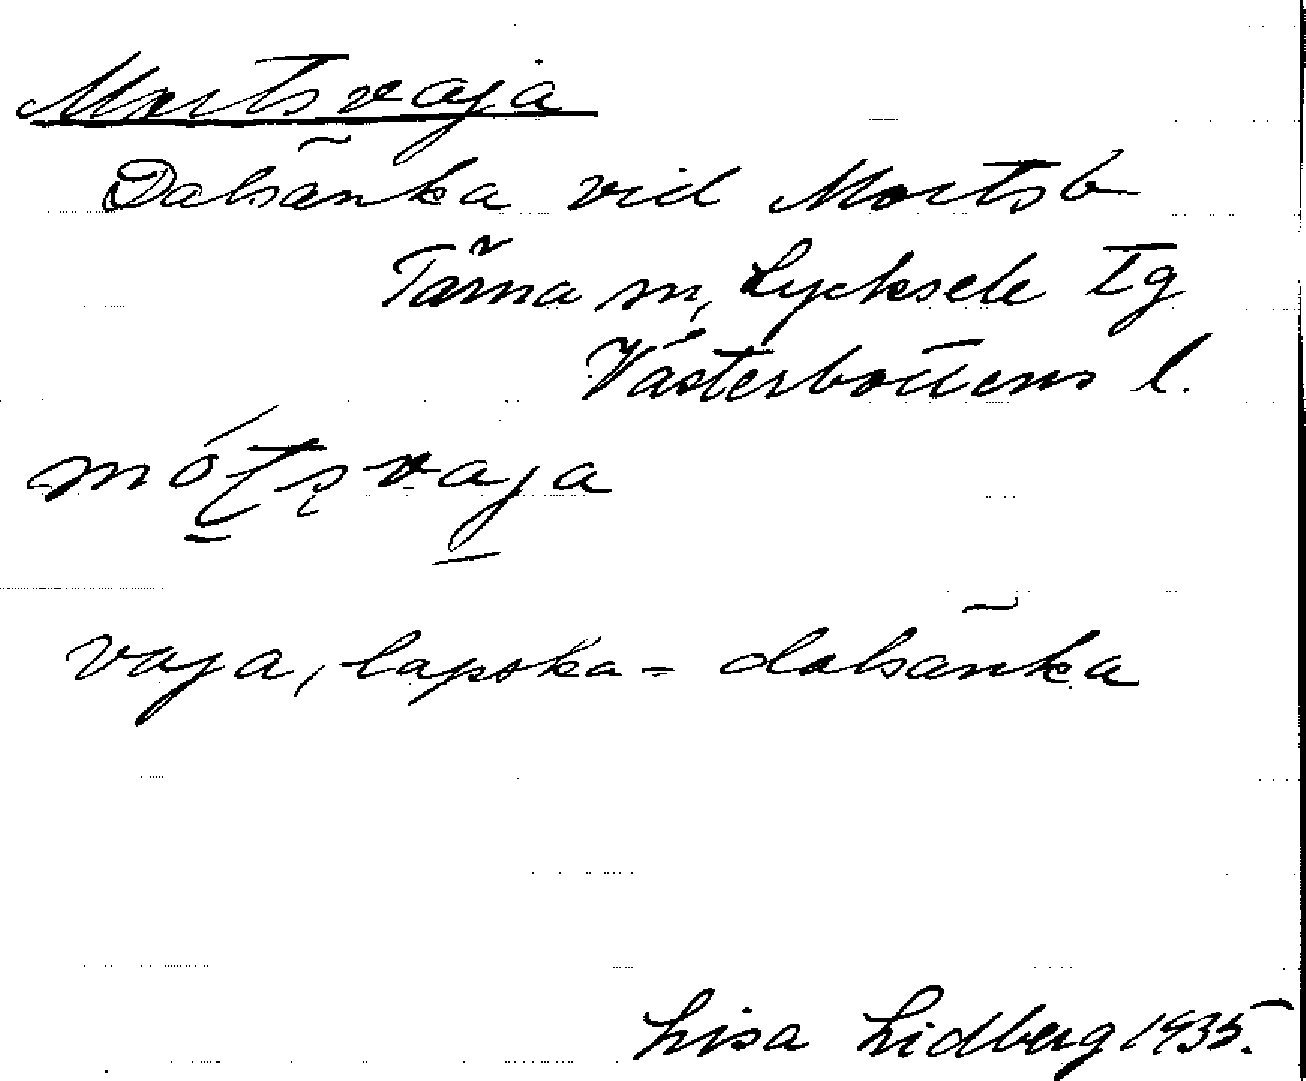 Mortsvaja
Dalsänka vid Mortsb
Tärna sn, Lycksele Tg
Västerbottens l.
vaja, lapska = dalsänka
Lisa Lidberg 1935.